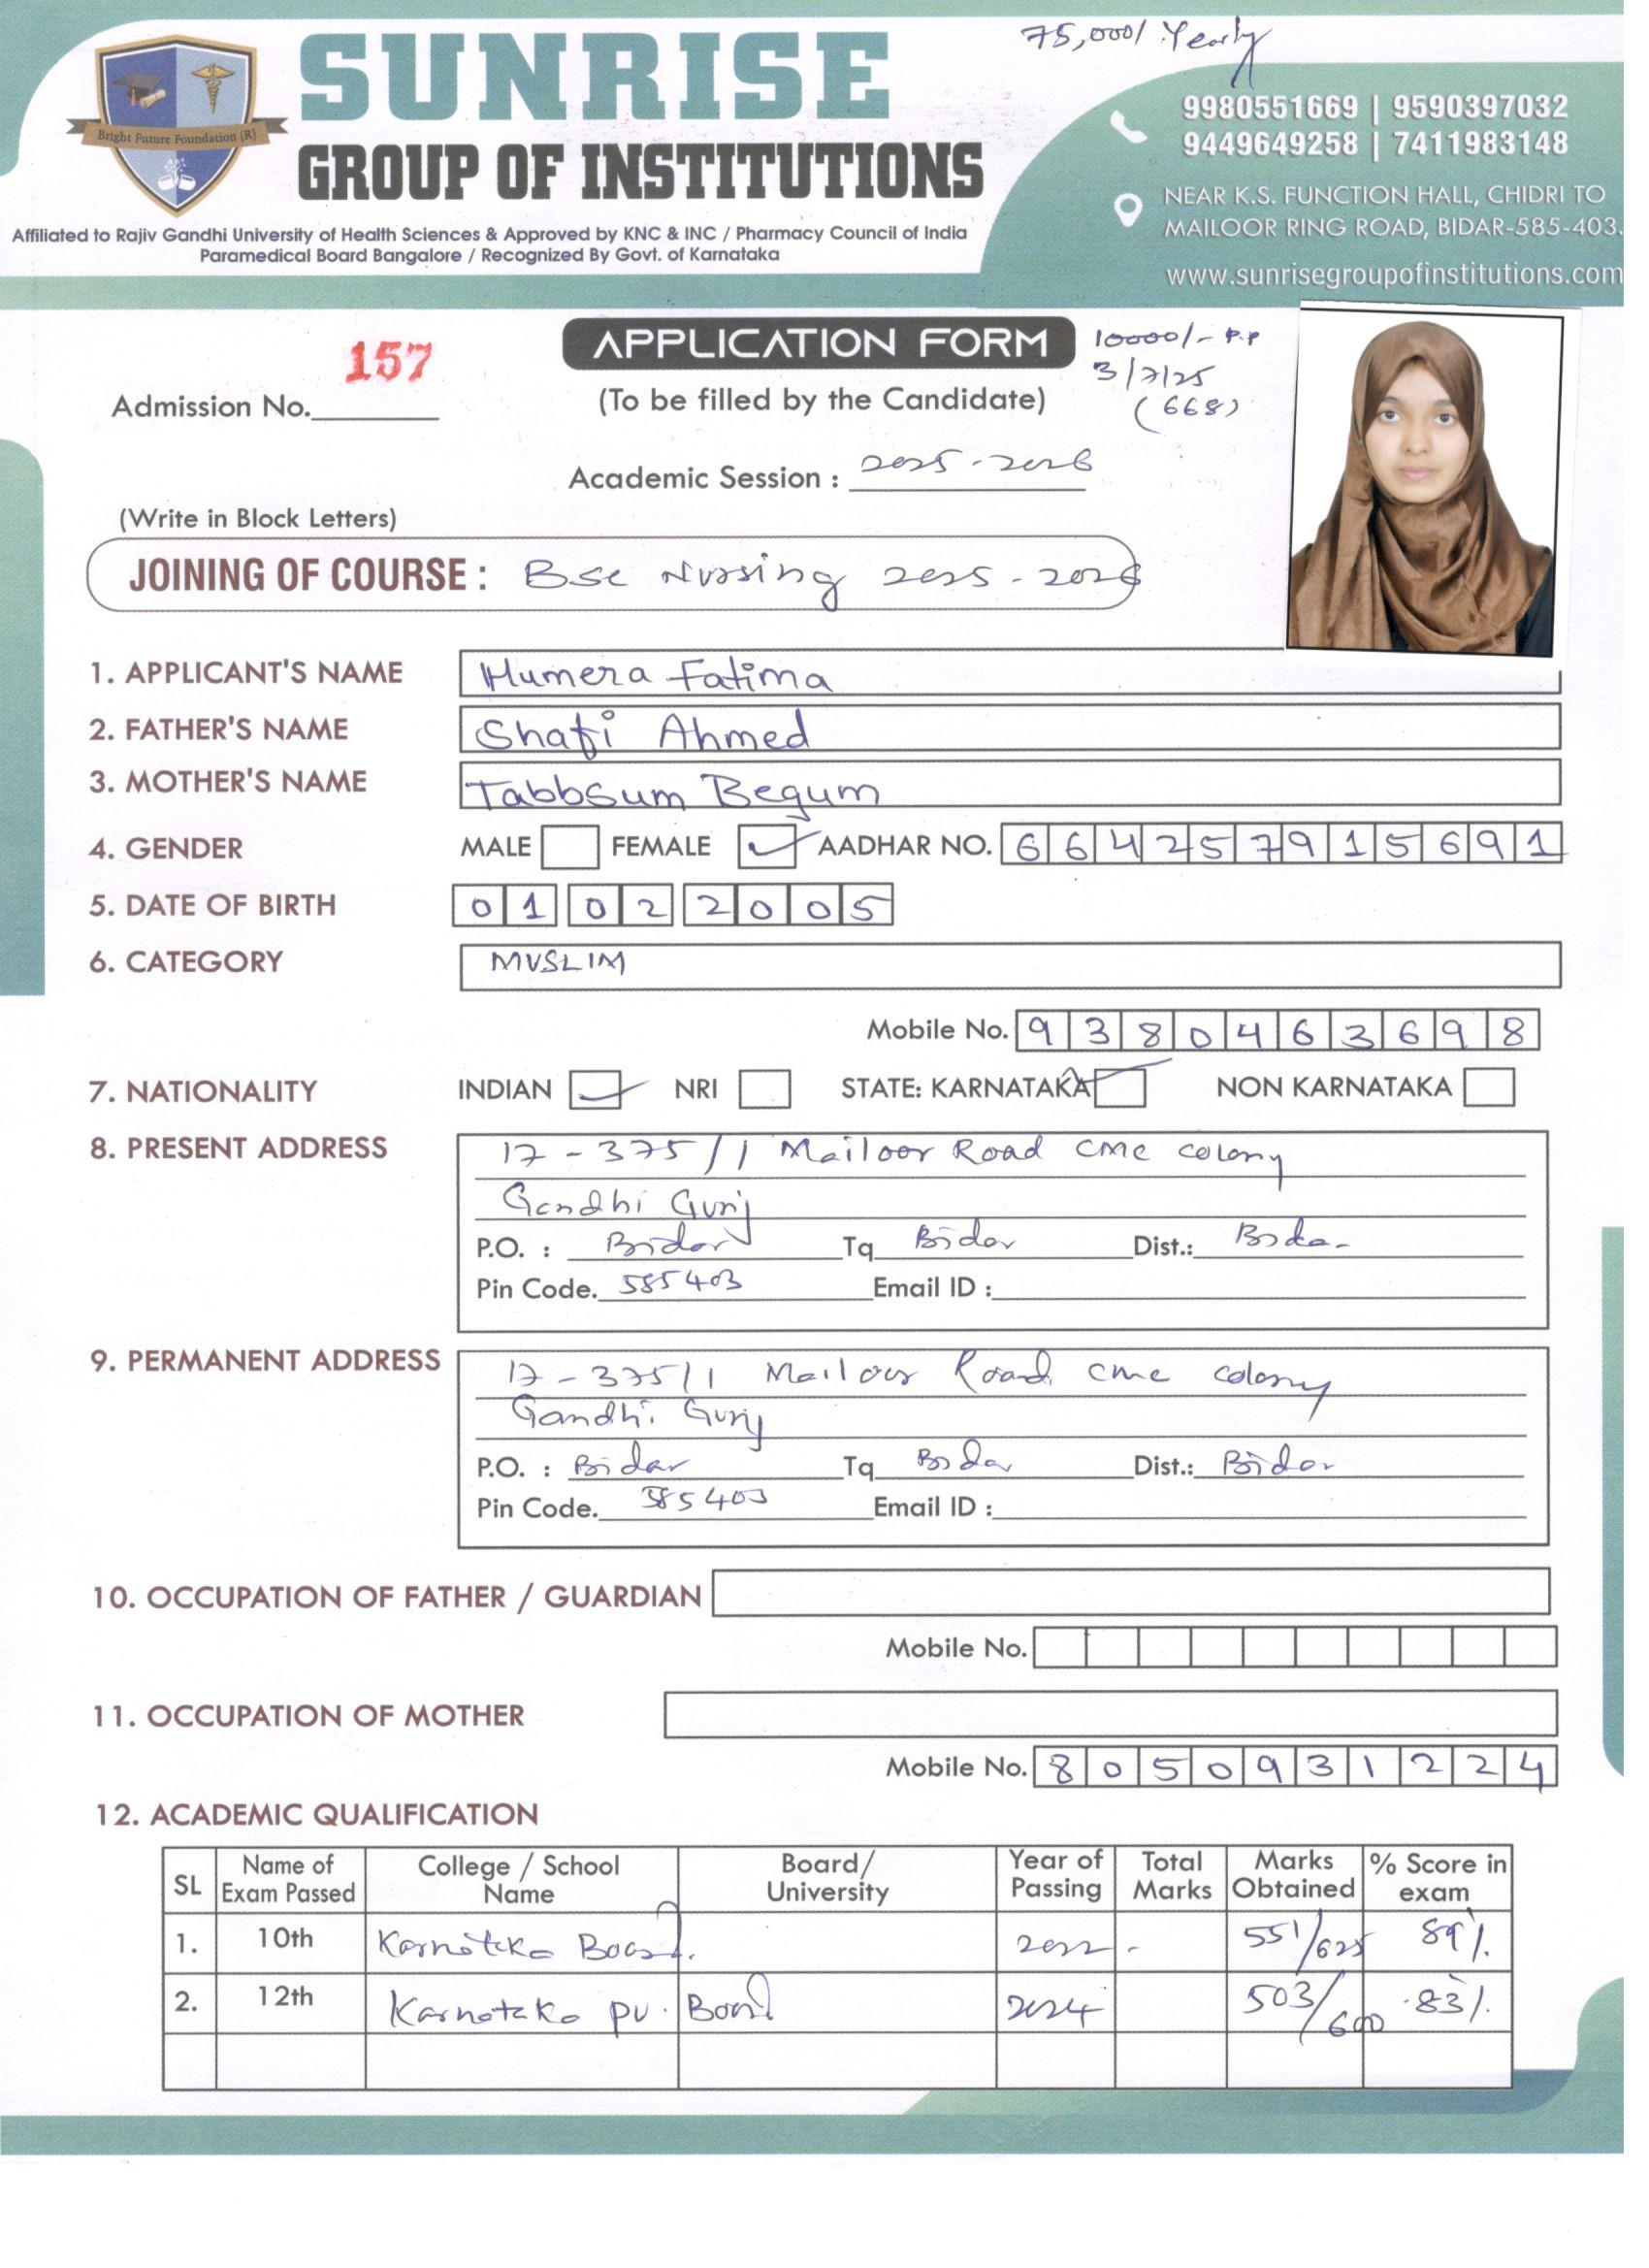 75,000/ Yearly
SUNRISE
GROUP OF INSTITUTIONS
Bright Future Foundation (R)
Affiliated to Rajiv Gandhi University of Health Sciences & Approved by KNC & INC / Pharmacy Council of India
Paramedical Board Bangalore / Recognized By Govt. of Karnataka
9980551669 | 9590397032
9449649258 | 7411983148
NEAR K.S. FUNCTION HALL, CHIDRI TO
MAILOOR RING ROAD, BIDAR-585-403.
www.sunrisegroupofinstitutions.com
APPLICATION FORM
10000/- P.P
3/7/25
(668)
Admission No. 157
(To be filled by the Candidate)
Academic Session : 2025-2026
(Write in Block Letters)
JOINING OF COURSE : Bsc Nursing 2025-2026
1. APPLICANT'S NAME Humera Fatima
2. FATHER'S NAME Shafi Ahmed
3. MOTHER'S NAME Tabbsum Begum
4. GENDER MALE FEMALE AADHAR NO. 664257915691
5. DATE OF BIRTH 01 02 2005
6. CATEGORY MUSLIM
Mobile No. 9380463698
7. NATIONALITY INDIAN NRI STATE: KARNATAKA NON KARNATAKA
8. PRESENT ADDRESS 17-375/1 Mailoor Road CMC colony
Gandhi Gunj
P.O. : Bidar Tq Bidar Dist.: Bidar
Pin Code. 585403 Email ID :
9. PERMANENT ADDRESS 17-375/1 Mailoor Road cmc colony
Gandhi Gunj
P.O. : Bidar Tq Bidar Dist.: Bidar
Pin Code. 585403 Email ID :
10. OCCUPATION OF FATHER / GUARDIAN
Mobile No.
11. OCCUPATION OF MOTHER
Mobile No. 8050931224
12. ACADEMIC QUALIFICATION
SL Name of Exam Passed College / School Name Board/ University Year of Passing Total Marks Marks Obtained % Score in exam
1. 10th Karnataka Board. 2022 - 551/625 89%.
2. 12th Karnataka PU. Board 2024 503/600 83%.